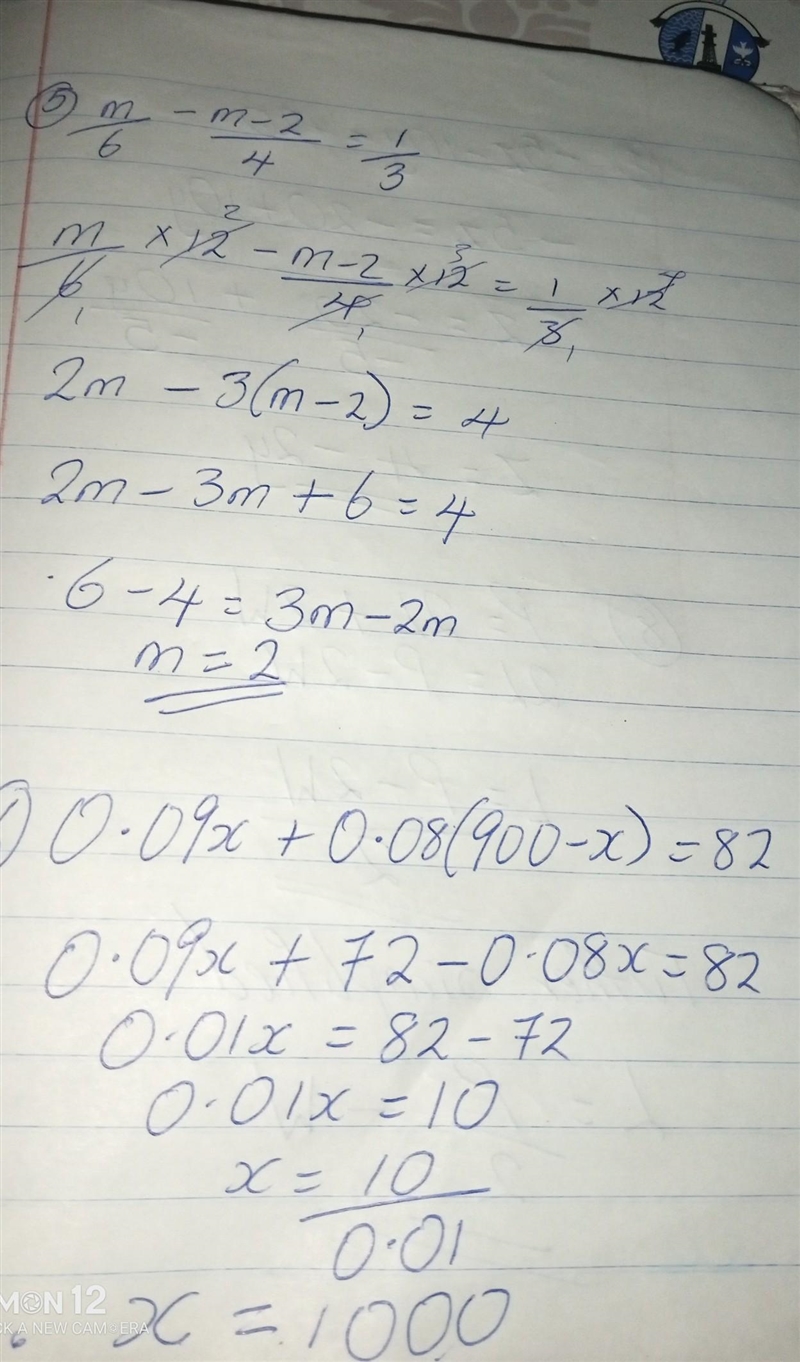 ⑤ m/6 - m-2/4 = 1/3
m/6 1 × 12 2 - m-2/4 1 × 12 3 = 1/3 1 × 12 4
2m - 3(m-2) = 4
2m - 3m + 6 = 4
6 - 4 = 3m - 2m
m = 2
) 0.09x + 0.08(900-x) = 82
0.09x + 72 - 0.08x = 82
0.01x = 82 - 72
0.01x = 10
x = 10
0.01
x = 1000
MON 12
CK A NEW CAM-ERA